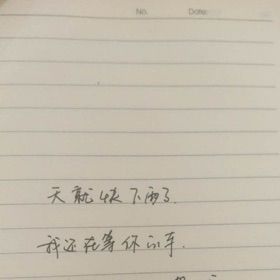 No.    Date:
天就快下雨了.
我还在等你的车.